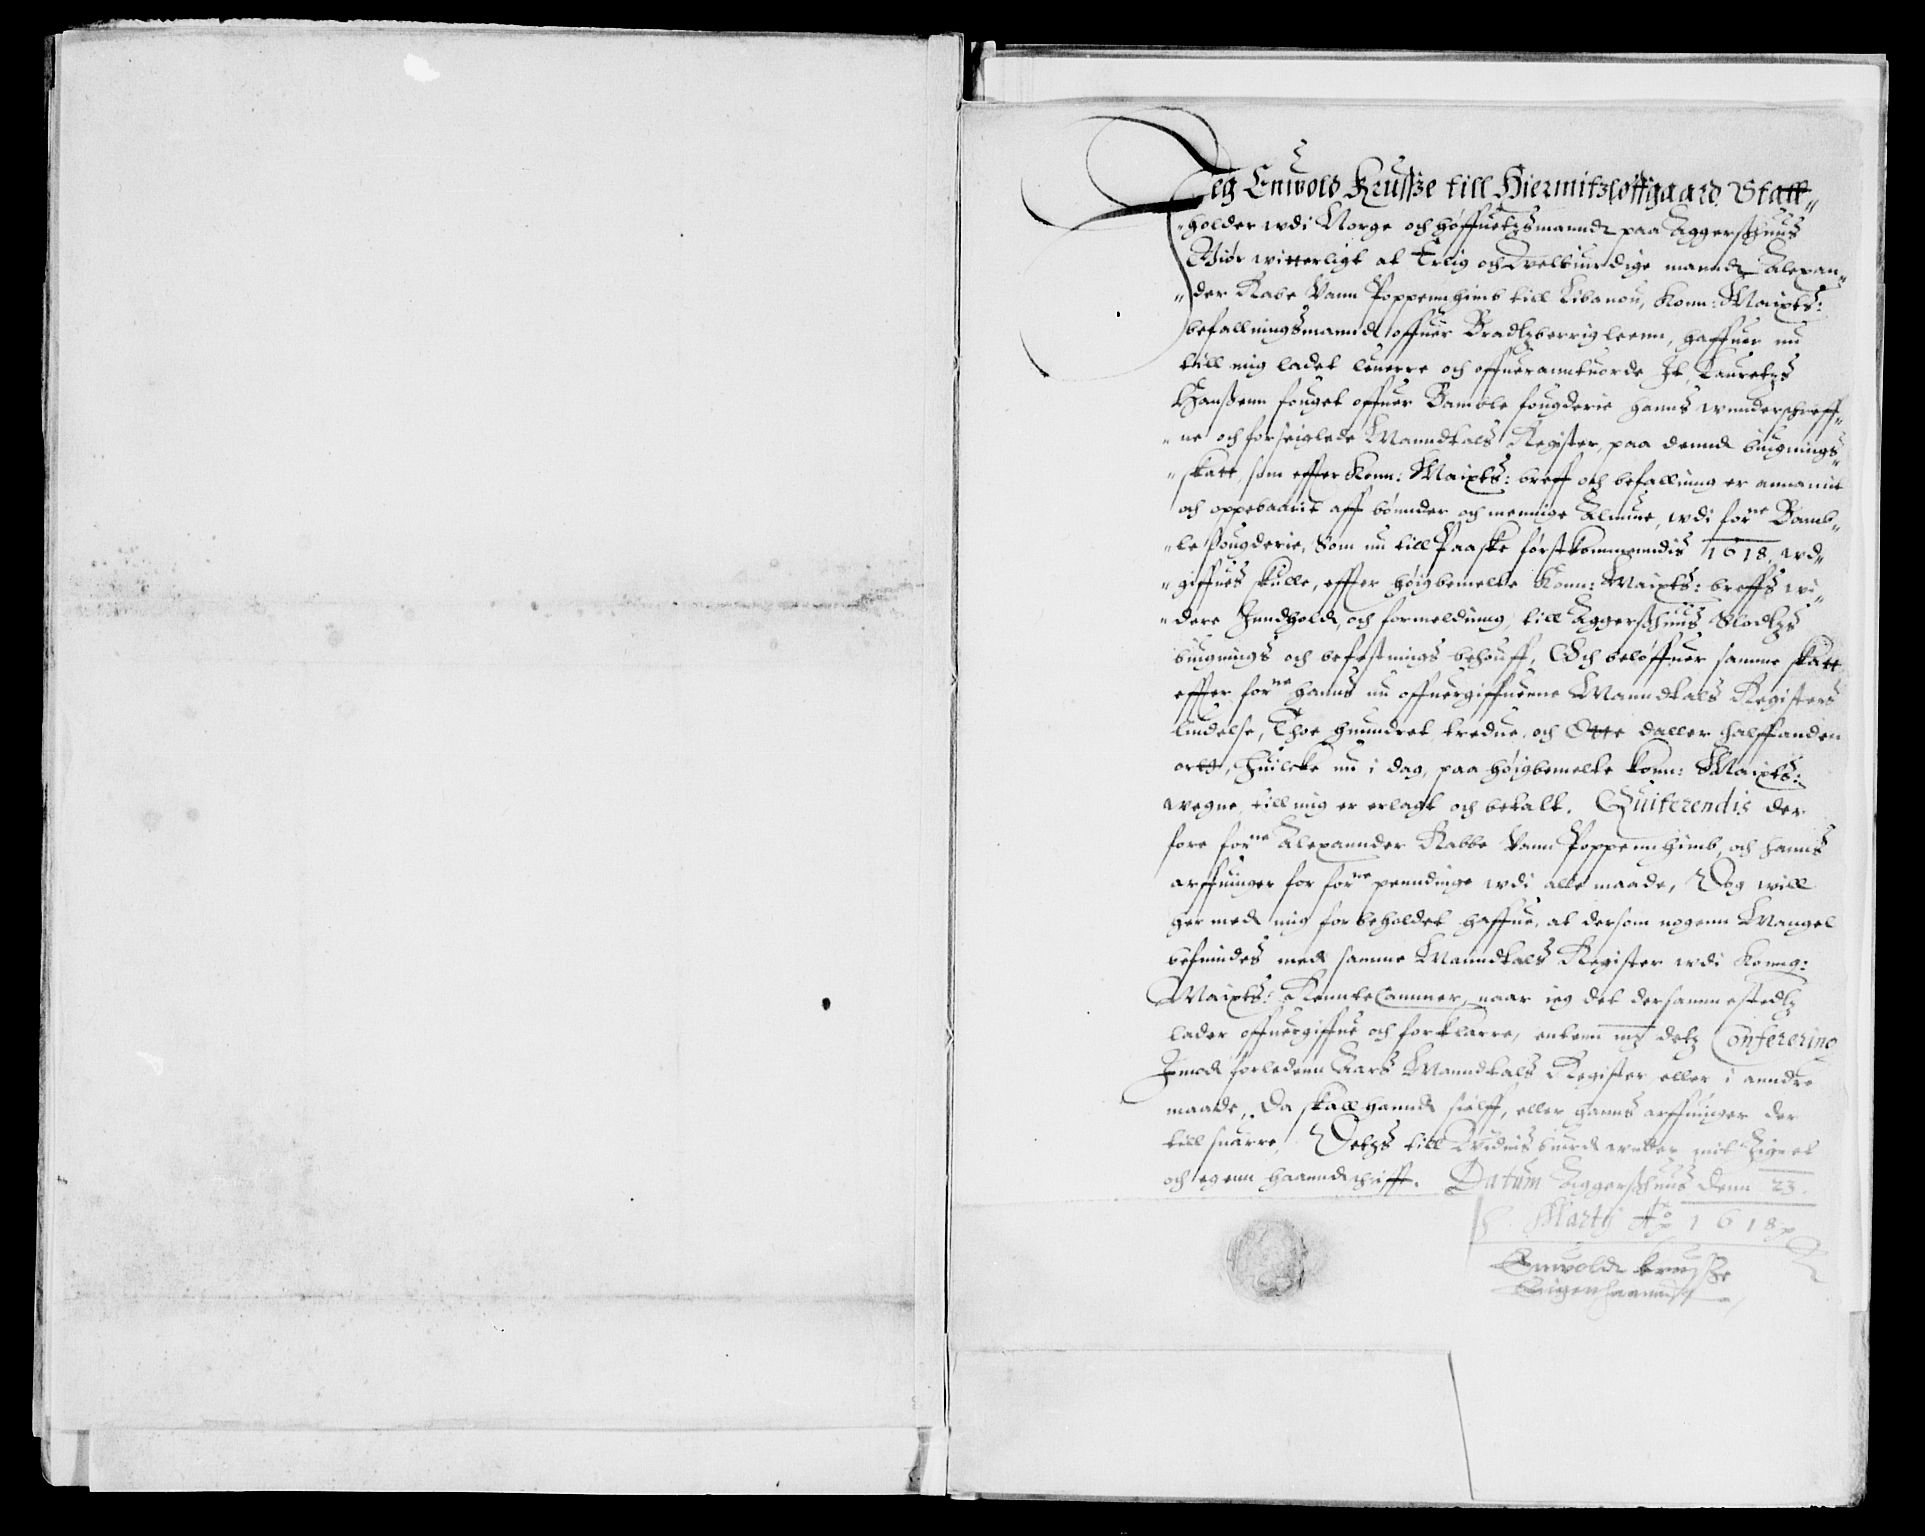 Jeg Enwold Krusße till Hiermitzløffgaard Statt„
„holder wdi Norge och høffuetzmannd paa Aggershuus
Giør witterligt at Erlig och welbiurdige mannd Alexan„
„der Rabe Vann Poppennhimb till Libanon, Konn: Maiits:
befallningsmannd offuer Bradtzberrig leenn, haffuer nu
till mig ladet leuerre och offuerantuorde It, Lauretzs
Hanßenn fouget offuer Bamble fougderie hanns wnnderschreff„
„ne och forseiglede Manndtals Register, paa dennd bugnings„
„skatt, som effter Konn: Maiits: breff och befallning er annamit
och oppebaarit aff bønnder och mennige Almue, wdi forne Bamb„
„le fougderie, Som nu till Paaske førstkommendis 1618, wd„
„giffues skulle, effter høigbemelte Konn: Maiits: breffs wi„
„dere Inndhold, och formelding, till Aggershuus Slodtzs
bugnings och befestnings behouff, Och beløffuer samme skatt
effter forne hanns nu offuergiffuenne Manndtals Registers
liudelse, Thoe hundret tredue, och Otte daller halffanden
ortt, Huilcke nu i dag, paa høigbemelte konn: Maiits:
wegne till mig er erlagt och betalt. Quiterendis der
fore forne Alexannder Rabbe Vann Poppennhimb, och hanns
arffuinger for forne penndinge wdi alle maade, Dog will
her med mig forbeholdet haffue, at dersom nogenn Mangel
befindes med samme Manndtals Register wdi Konng:
Maiits: RennteCammer, naar ieg det dersamme stedtz
lader offuergiffue och forklarre, entenn mz detz Conferering
Imod forledenn Aars Manndtals Register eller i anndre
maade, Da skall hannd sielff, eller hanns arffuinger der
till suarre, Detzs till Widnisbiurd wnder mit Zignet
och egenn haanndschrifft. Datum Aggershuus denn 23.
Martij Ao 1618
Enwold krusße
Eigenhaannd